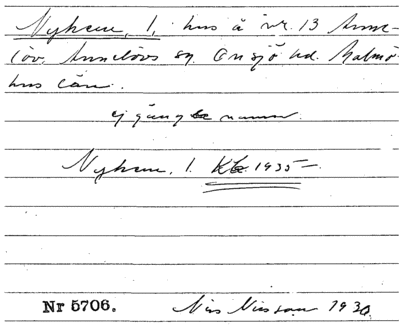 Nyhem, 1, hus å nr. 13 Anne-
löv, Annelövs sn Onsjö hd. Malmö-
hus län.
ej gängse namn.
Nyhem, 1. 1935
Nr 5706. Nils Nilsson 1930